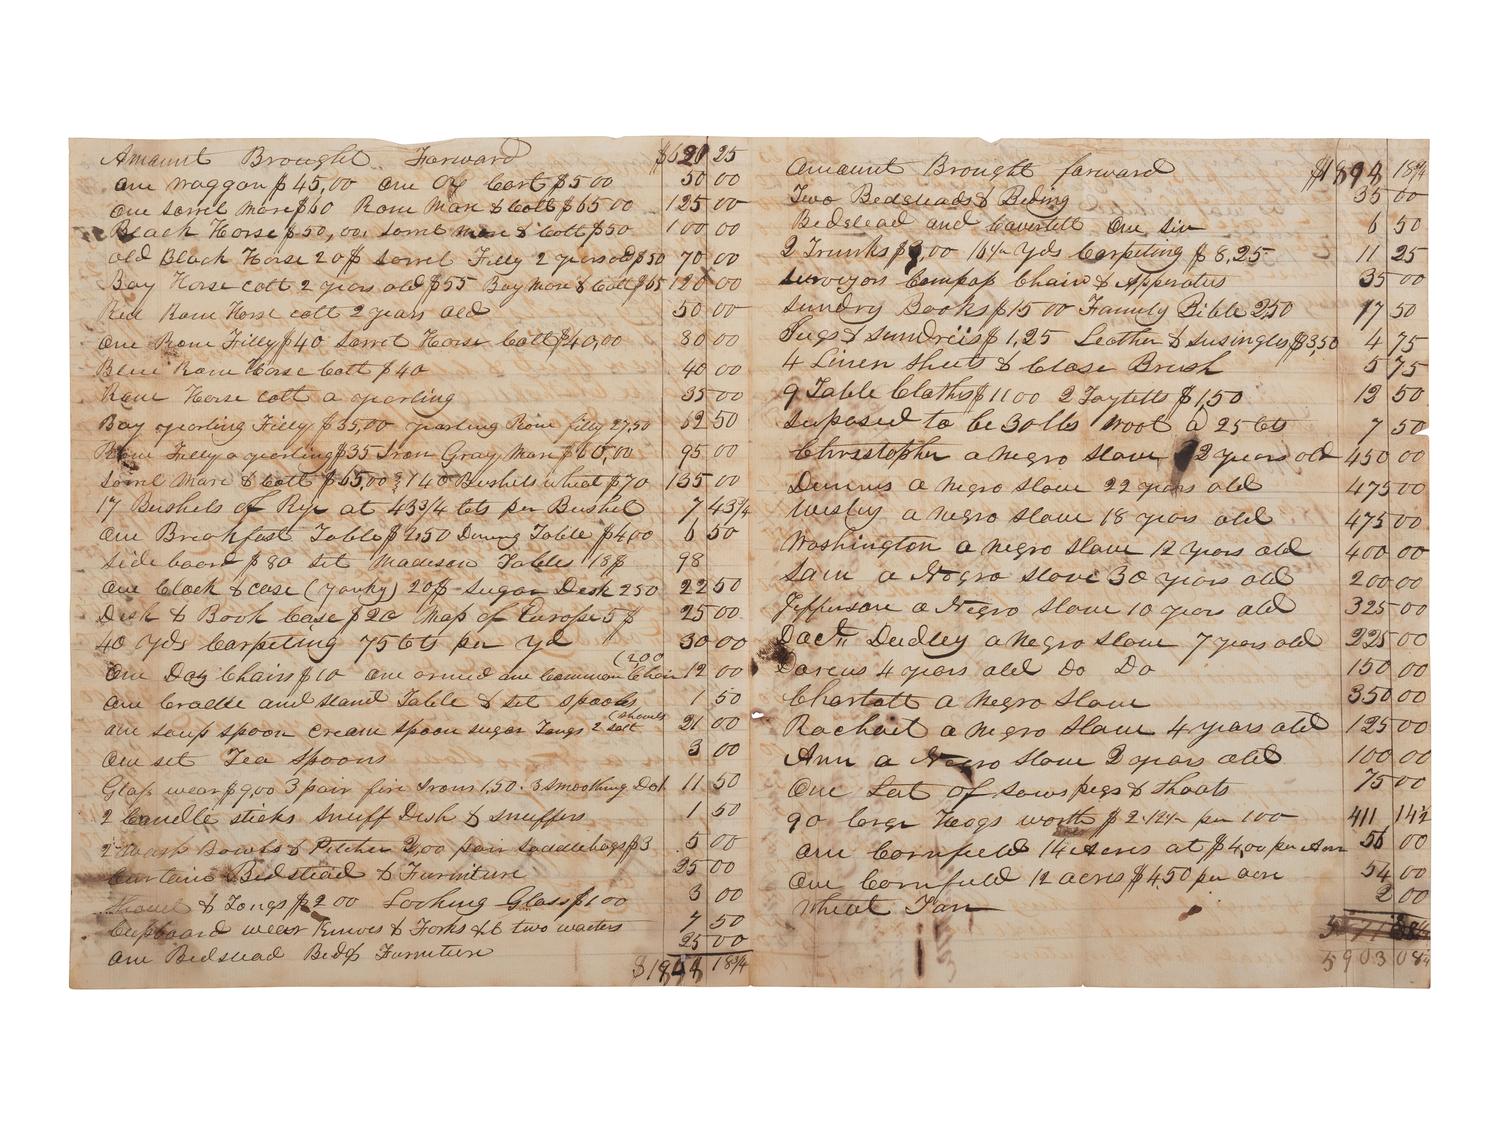 Amount Brought Forward $620 25
one waggon $45,00 one Ox Cart $5 00 50 00
one Sorrel Mare $60 Roan Mare & Colt $65 00 125 00
Black Horse $50,00, Sorrel Mare & Colt $50 100 00
old Black Horse 20$ Sorrel Filly 2 years old $50 70 00
Bay Horse colt 2 years old $55 Bay Mare & Colt $65 120 00
Red Roan Horse colt 2 years old 50 00
one Roan Filly $40 Sorrel Horse Colt $40,00 80 00
Blue Roan Horse Colt $40 40 00
Roan Horse colt a yearling 35 00
Bay yearling Filly $35,00 yearling Roan filly 27,50 62 50
Roan Filly a yearling $35 Iron Gray Mare $60,00 95 00
Sorrel Mare & Colt $65,00 & 140 Bushels wheat $70 135 00
17 Bushels of Rye at 43 3/4 cts per Bushel 7 43 3/4
one Breakfast Table $2,50 Dining Table $4,00 6 50
side board $80 set Madison Tables 18$ 98
one Clock & case (yanky) 20$ Sugar Desk 250 22 50
Desk & Book Case $20 Map of Europe 5$ 25 00
40 yds Carpeting 75 cts per yd 30 00
(200
one Doz Chairs $10 one armed one Common Chair 12 00
one Cradle and stand Table & set spools 1 50
one soup spoon cream spoon sugar Tongs 2 salt (shovels 21 00
one set Tea Spoons 3 00
Glass wear $9,00 3 pair fire Irons 1,50. 3 smoothing Do1 11 50
2 Candle sticks snuff Dish & snuffers 1 50
2 Wash Bowls & Pitcher 2,00 pair saddlebags $3 5 00
Curtain Bedstead & Furniture 25 00
Shovel & Tongs $2 00 Looking Glass $1 00 3 00
Cupboard wear Knives & Forks & two waiters 7 50
one Bedstead Bed & Furniture 25 00
18 3/4
Amount Brought forward 18 3/4
Two Bedsteads & Beding 35 00
Bedstead and Coverlett One 6 50
2 Trunks $3,00 16 1/2 yds Carpeting $8,25 11 25
Surveyors Compass Chain & Apperates 35 00
Sundry Books $15 00 Family Bible 2,50 17 50
Jugs & sundries $1,25 Leather & susingles $3,50 4 75
4 Linen sheets & Close Brush 5 75
9 Table Cloths $11 00 2 $1,50 12 50
Suposed to be 30 lbs Wool @ 25 cts 7 50
Christopher a Negro Slave 2 years old 450 00
Dennis a Negro Slave 22 years old 475 00
Wesley a Negro Slave 18 years old 475 00
Washington a Negro Slave 12 years old 400 00
Sam a Negro Slave 30 years old 200 00
Jefferson a Negro Slave 10 years old 325 00
Dudley a Negro Slave 7 years old 225 00
Darcus 4 years old Do Do 150 00
Charlott a Negro Slave 350 00
Rachael a Negro Slave 4 years old 125 00
Ann a Negro Slave 2 years old 100 00
One Lot of Sows pigs & Shoats 75 00
90 large Hogs worth $ per 100 411 14 1/2
one Cornfield 14 Acres at $4,00 per Acre 56 00
One Cornfield 12 acres $4,50 per acre 54 00
Wheat Fan 2 00
5903 08 1/4